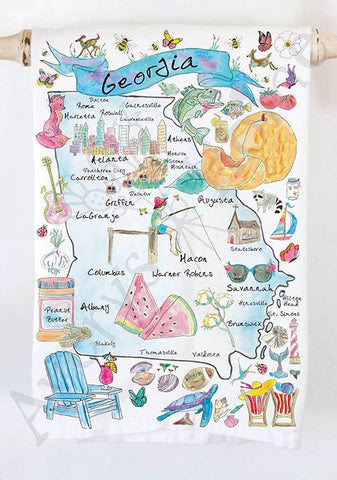 Georgia
Dalton
Rome
Gainesville
Marietta
Roswell
Lawrenceville
Athens
Atlanta
Monroe
Stone
Mountain
Peachtree City
Carrollton
Decatur
Griffin
Augusta
LaGrange
Statesboro
Macon
Columbus
Warner Robins
Savannah
Hinesville
Peanut
Butter
Albany
St. Simons
Brunswick
Blakely
Thomasville
Valdosta